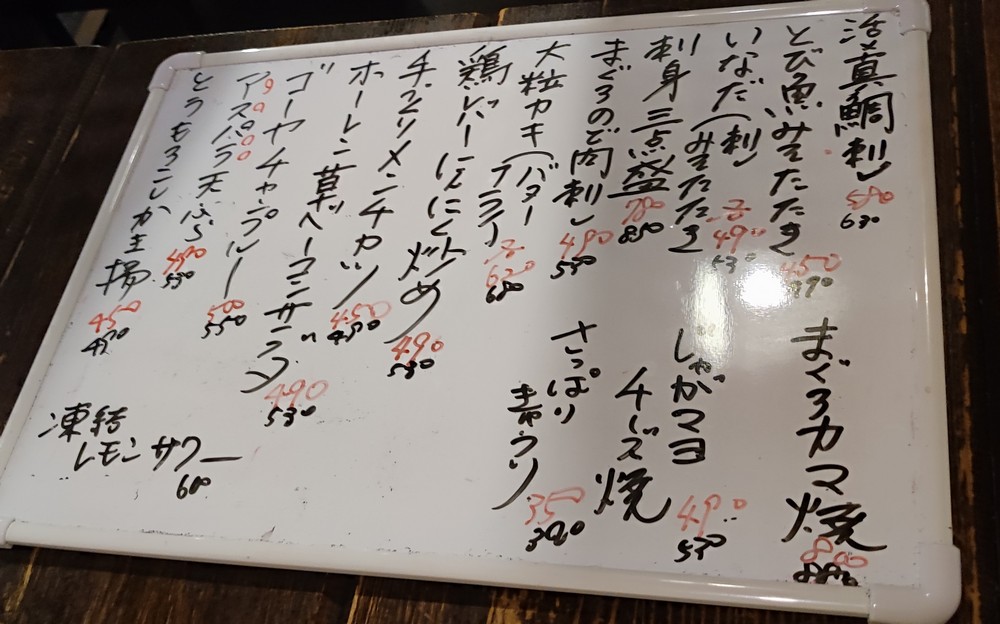 活真鯛刺し 580 630
とび魚みそたたき 450 490
いなだ(刺し みそたたき 各490 530
刺身三点盛 780 850
まぐろのど肉刺し 490 530
大粒カキ(バター フライ 各620 680
鶏レバーにんにく炒め 490 530
チーズメンチカツ 450 490
ホーレン草ベーコンサラダ 490 530
ゴーヤチャンプルー 500 550
アスパラ天ぷら 490 530
とうもろこしかき揚 450 490
まぐろカマ焼 800 880
じゃがマヨ
チーズ焼 490 530
さっぱり
キウリ 350 390
凍結
レモンサワー
680